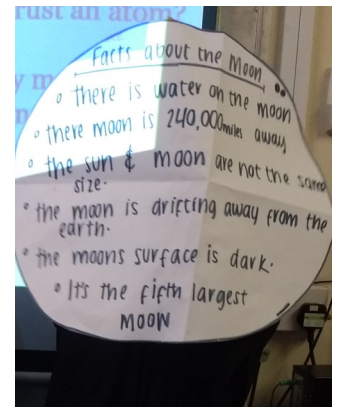 rust an atom?
Facts about the Moon
• there is water on the moon
• there moon is 240,000miles away
• the sun & moon are not the same
size.
• the moon is drifting away from the
earth.
• the moons surface is dark.
• It's the fifth largest
MOON